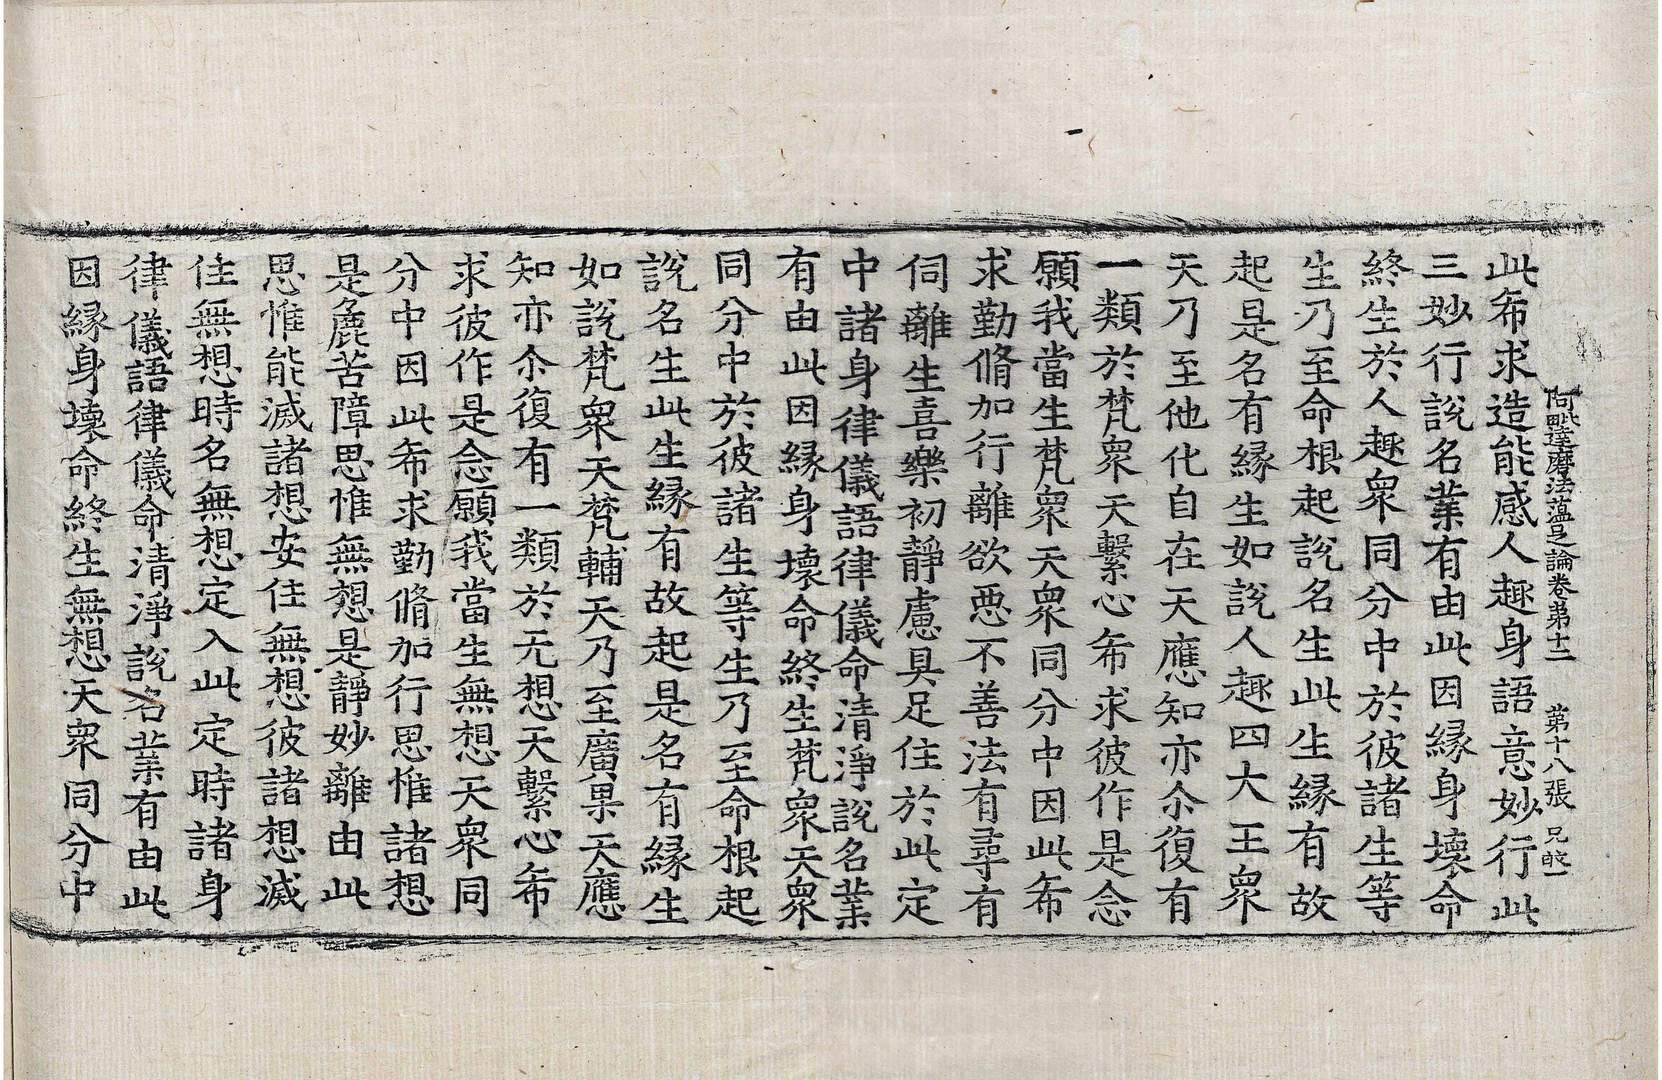 阿毗達磨法蘊足論卷第十二 第十八張 兄
此希求造能感人趣身語意妙行此
三妙行說名業有由此因緣身壞命
終生於人趣衆同分中於彼諸生等
生乃至命根起說名生此生緣有故
起是名有緣生如說人趣四大王衆
天乃至他化自在天應知亦尒復有
一類於梵衆天繫心希求彼作是念
願我當生梵衆天衆同分中因此希
求勤脩加行離欲惡不善法有尋有
伺離生喜樂初靜慮具足住於此定
中諸身律儀語律儀命清淨說名業
有由此因緣身壞命終生梵衆天衆
同分中於彼諸生等生乃至命根起
說名生此生緣有故起是名有緣生
如說梵衆天梵輔天乃至廣果天應
知亦尒復有一類於无想天繫心希
求彼作是念願我當生無想天衆同
分中因此希求勤脩加行思惟諸想
是麁苦障思惟無想是靜妙離由此
思惟能滅諸想安住無想彼諸想滅
住無想時名無想定入此定時諸身
律儀語律儀命清淨說名業有由此
因緣身壞命終生無想天衆同分中